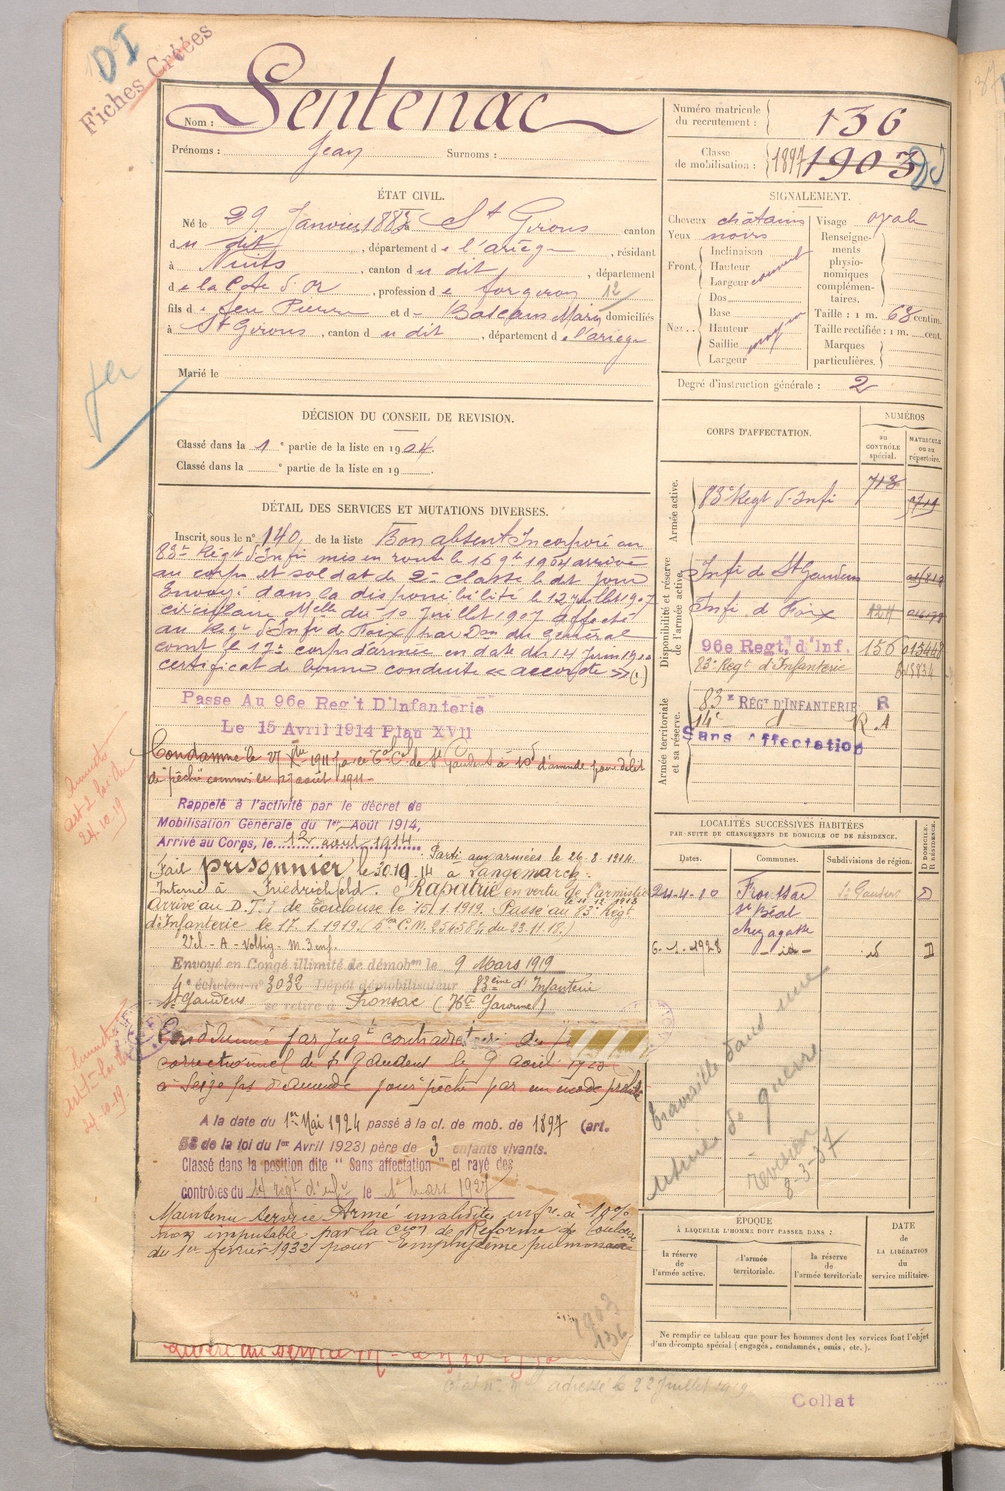 DI
Fiches Créées
Nom : Sentenac
Prénoms : Jean Surnoms :
Numéro matricule du recrutement : 136
Classe de mobilisation : 1897 1903
ÉTAT CIVIL.
Né le 29 Janvier 1883 à St Girons canton
du dit, département de l'ariège, résidant
à Nuits, canton du dit, département
de la Cote d'Or, profession de forgeron 12
fils de feu Pierre et de Marie domiciliés
à St Girons, canton du dit, département de l'ariège
Marié le
SIGNALEMENT.
Cheveux châtains Visage ovale
Yeux noirs
Front. Inclinaison
Hauteur
Largeur
Nez. Dos
Base
Hauteur
Saillie
Largeur
Renseignements physionomiques complémentaires.
Taille : 1 m. 68 centim.
Taille rectifiée : 1 m. cent.
Marques particulières.
Degré d'instruction générale : 2
DÉCISION DU CONSEIL DE REVISION.
Classé dans la 1e partie de la liste en 1904.
Classé dans la e partie de la liste en 19 .
CORPS D'AFFECTATION.
NUMÉROS
au CONTRÔLE spécial.
MATRICULE ou au répertoire.
Armée active.
83e Regt d'Infie 713
Disponibilité et réserve de l'armée active.
Infie de St Gaudens
Infie de Foix
96e Regt, d'Inf. 156
83e Regt d'Infanterie
Armée territoriale et sa réserve.
83e RÉGT D'INFANTERIE R
14e d RA
Sans Affectation
DÉTAIL DES SERVICES ET MUTATIONS DIVERSES.
Inscrit sous le n° 140 de la liste Bon absent Incorporé au
83e Régt d'Infie mis en route le 15 9bre 1904 arrivé
au corps et soldat de 2e classe le dit jour
Envoyé dans la disponibilité le 12 juillet 1907
circulaire Melle du 1er Juillet 1907 affecté
au Regt d'Infie de Foix par Don du général
comt le 17e corps d'armée en date du 14 Juin 1910
certificat de bonne conduite « accordé »
Passe Au 96e Reg't D'Infanterie
Le 15 Avril 1914 Plan XVII
Condamné le 27 Xbre 1911 par le Tal Cel de St Gaudens à 10f d'amende pour délit
de pêche commis le 27 août 1911
Rappelé à l'activité par le décret de
Mobilisation Générale du 1er Août 1914,
Arrivé au Corps, le 12 aout 1914
Parti aux armées le 26.8.1914.
Fait prisonnier le 30.10.14 à Langemarck
Interné à Friedrichfeld. Rapatrié en vertu de l'armistice
du 11.11.1918
Arrivé au D.T.I de Toulouse le 15/1.1919. Passé au 83e Régt
d'Infanterie le 17.1.1919.
Envoyé en Congé illimité de démobon le 9 Mars 1919
4e échelon n° 3032 Dépôt démobilisateur 83ème d'Infanterie
St Gaudens se retire à Fronsac (Hte Garonne)
Condamné par Jugt contradictoire du
correctionnel de St Gaudens le 9 août
à Seize frs d'amende pour pêche par un mode prohibé
A la date du 1er Mai 1924 passé à la cl. de mob. de 1897 (art.
58 de la loi du 1er Avril 1923) père de 3 enfants vivants.
Classé dans la position dite " Sans affectation " et rayé des
contrôles du 14 regt d'infie le 1er Mars 1927
Maintenu Service Armé invalidité infre à 10%
non imputable par la Cion de Réforme de Toulouse
du 1er février 1932 pour Emphysème pulmonaire
1903
136
LOCALITÉS SUCCESSIVES HABITÉES
PAR SUITE DE CHANGEMENTS DE DOMICILE OU DE RÉSIDENCE.
Dates. Communes. Subdivisions de région. D DOMICILE. R RÉSIDENCE.
24-4-10 Fronsac St Gaudens D
St Béat
chez
6-1-1928 id id D
travaille dans une
usine de guerre
revision
8-3-37
ÉPOQUE
À LAQUELLE L'HOMME DOIT PASSER DANS :
la réserve de l'armée active.
l'armée territoriale.
la réserve de l'armée territoriale
DATE de LA LIBÉRATION du service militaire.
Ne remplir ce tableau que pour les hommes dont les services font l'objet
d'un décompte spécial (engagés, condamnés, omis, etc.).
adressé le 22 Juillet
Collat